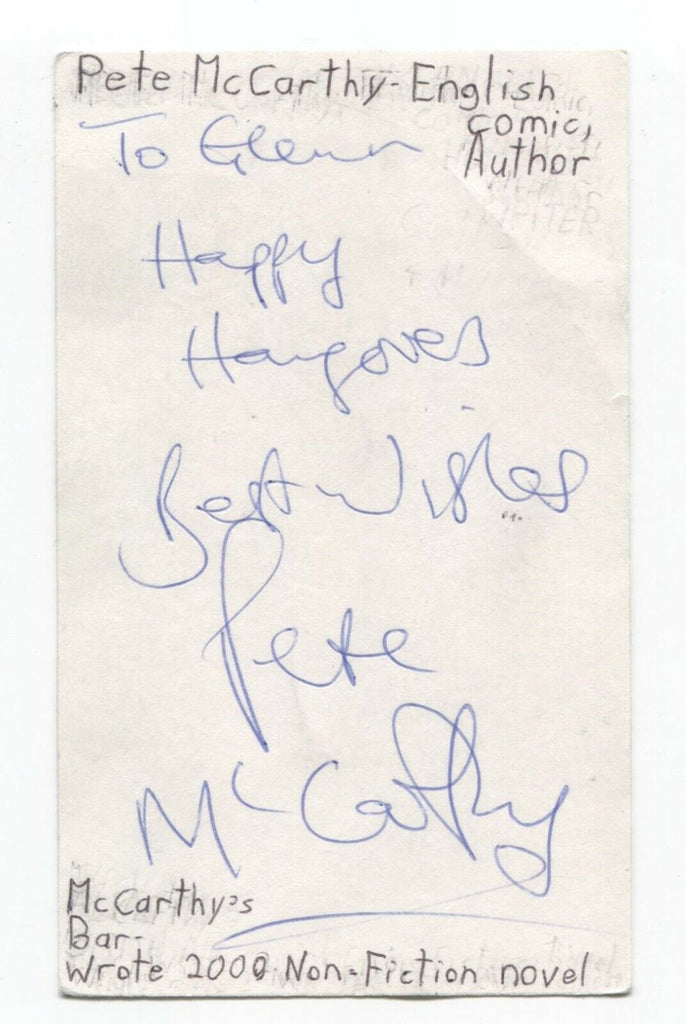 Pete McCarthy - English
comic,
Author
To Glenn
Happy
Hangovers
Best Wishes
Pete
McCarthy
McCarthy's
Bar -
Wrote 2000 Non-Fiction novel